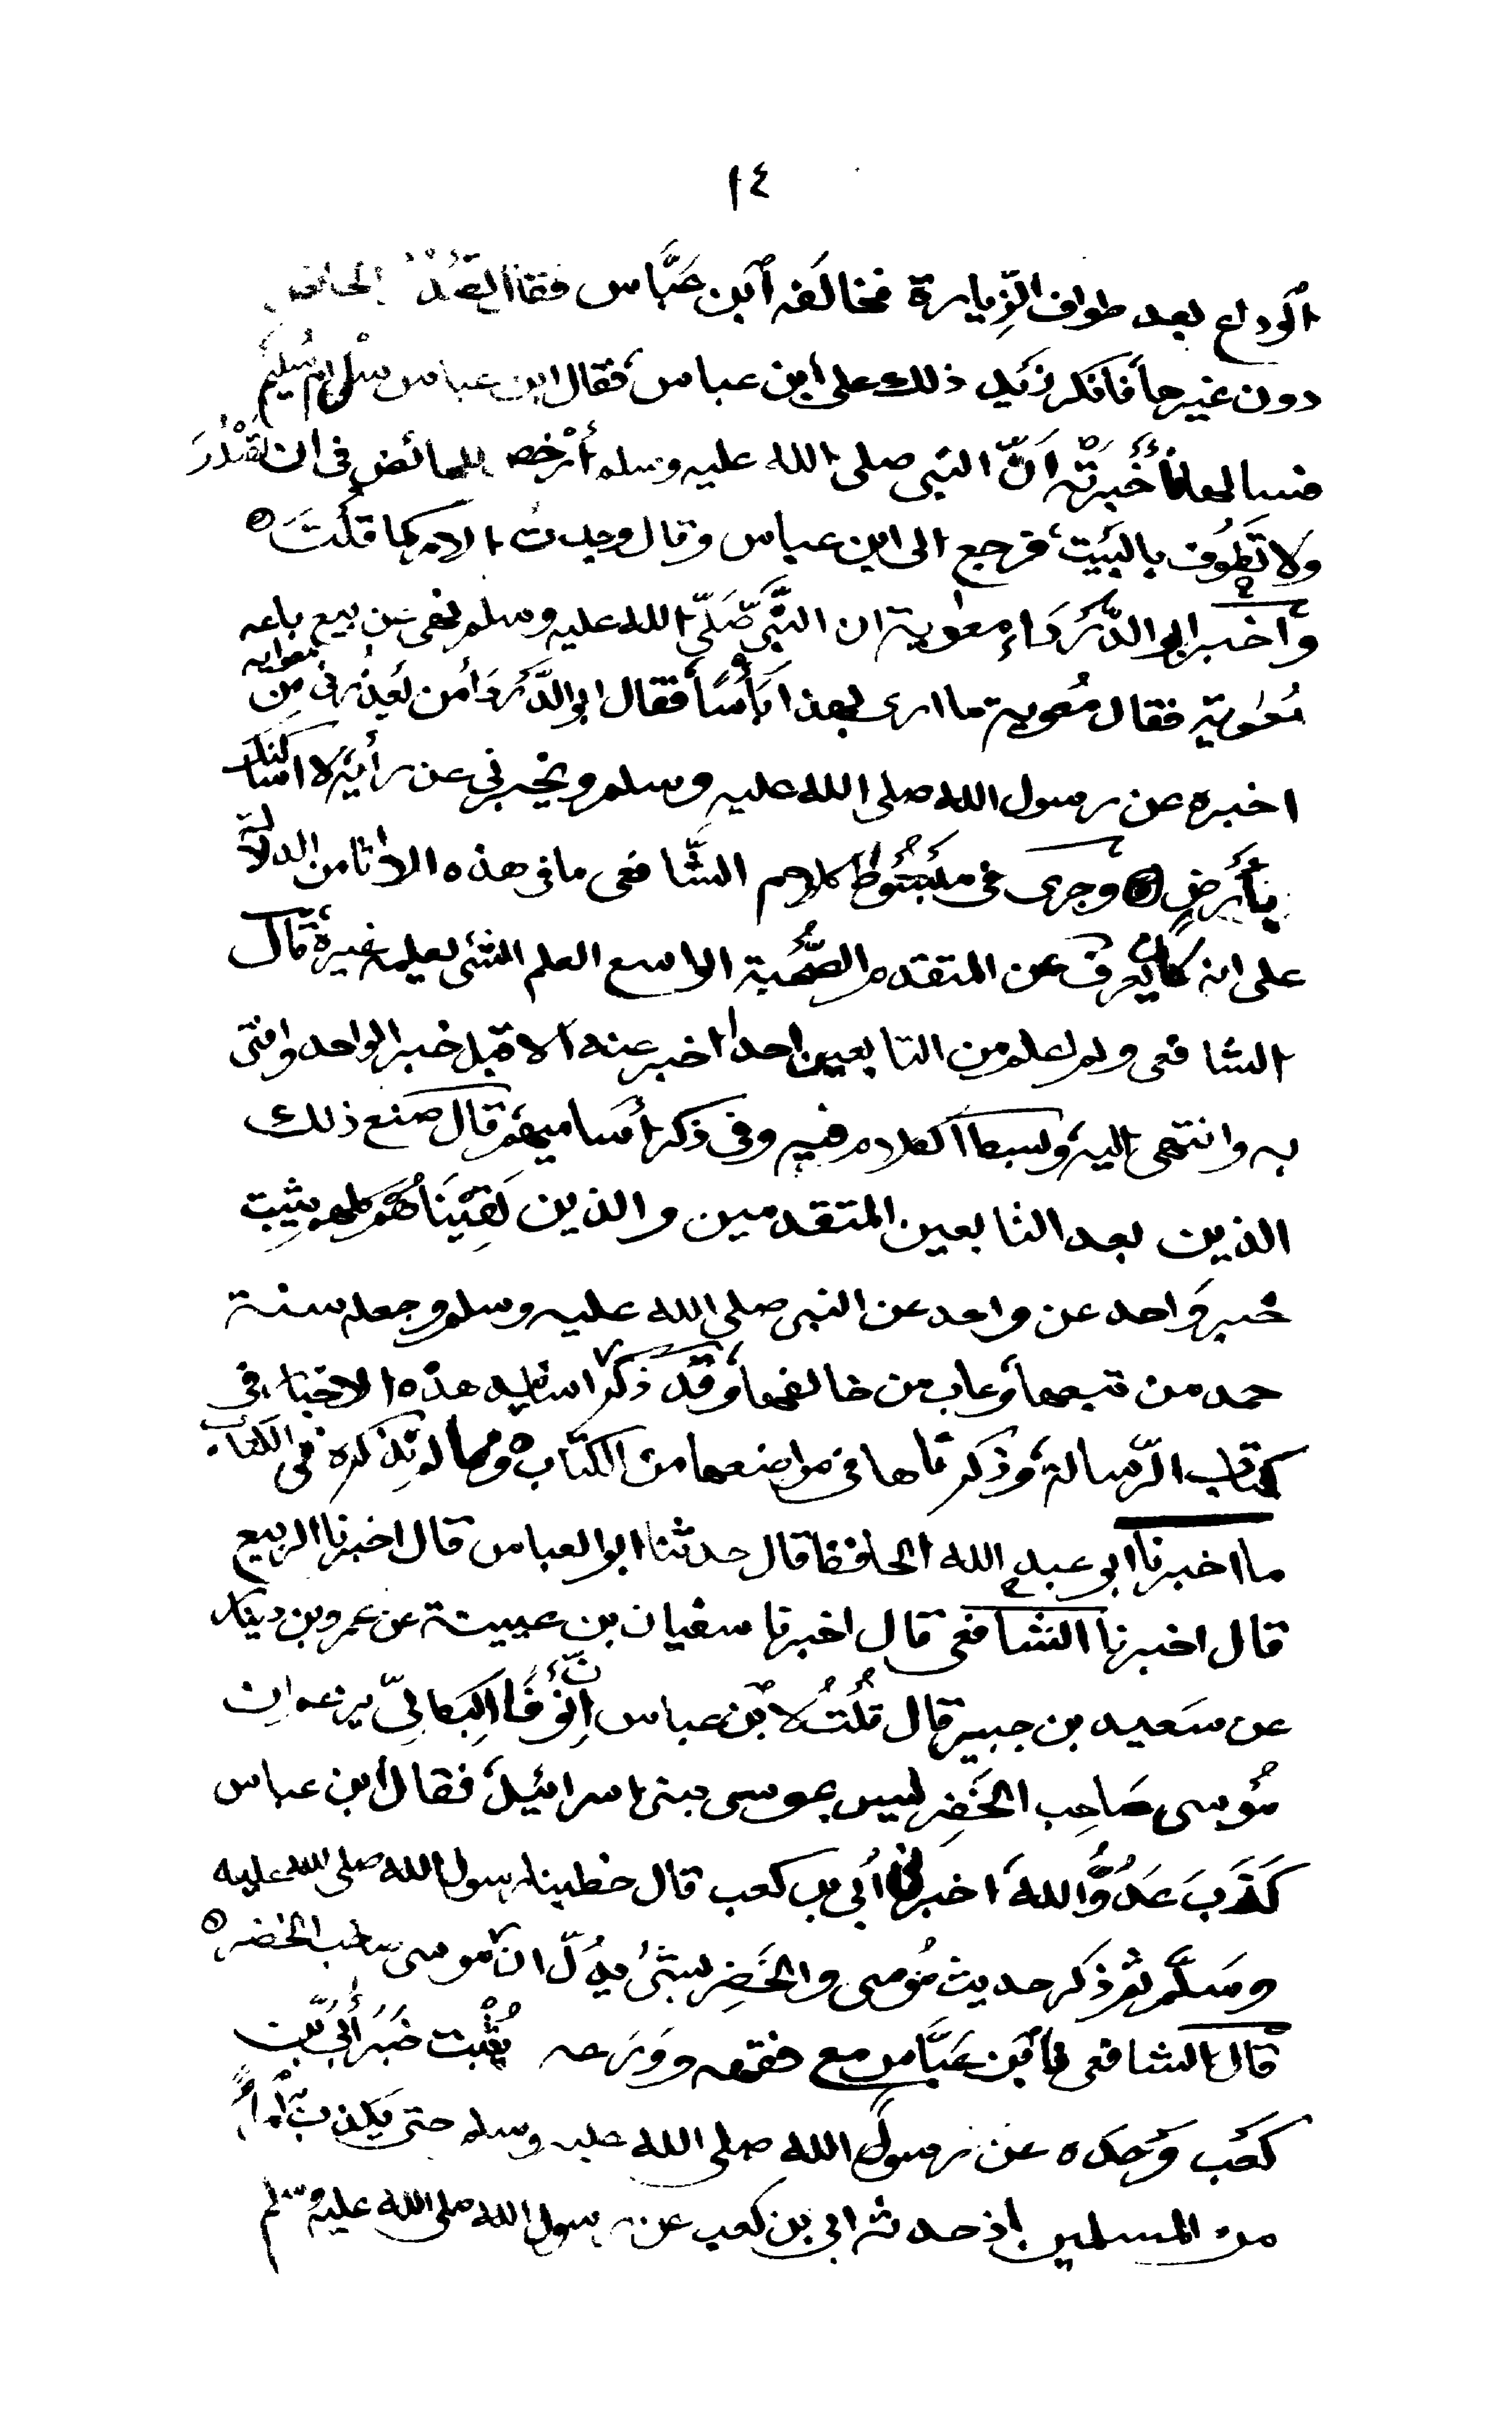 ١٤
الوداع بعد طواف الزيارة فخالفه ابن عباس فقال تصدر الحائض
دون غيرها فانكر زيد ذلك على ابن عباس فقال ابن عباس سل ام سليم
فسالها فاخبرته ان النبي صلى الله عليه وسلم ارخص للحائض فى ان تصدر
ولا تطوف بالبيت فرجع الى ابن عباس وقال وجدت الامر كما قلت ٥
واخبر ابو الدرداء معوية ان النبي صلى الله عليه وسلم نهى عن بيع باعه
معوية فقال معوية ما ارى بهذا باسا فقال ابو الدرداء من يعذرنى من معوية
اخبره عن رسول الله صلى الله عليه وسلم ويخبرني عن رأيه لا اساكنك
بأرض ٥ وجرى فى مبسوط كلام الشافعى ما فى هذه الاثار من الدلالة
على انه كان يعزف عن المتقدم الصحبة الواسع العلم الشئ يعلمه غيره قال
الشافعى ولم اعلم من التابعين احدا اخبر عنه الا قبل خبر الواحد وافتى
به وانتهى اليه وبسط الكلام فيه وفى ذكر أساميهم قال صنع ذلك
الذين بعد التابعين المتقدمين والذين لقيناهم كلهم يثبت
خبر واحد عن واحد عن النبي صلى الله عليه وسلم وجعله سنة
حمد من تبعها وعاب من خالفها وقد ذكر اسانيد هذه الاخبار فى
كتاب الرسالة وذكرناها فى مواضعها من الكتاب ٥ ومما لم نذكره فى الكتاب
ما اخبرنا ابو عبد الله الحافظ قال حدثنا ابو العباس قال اخبرنا الربيع
قال اخبرنا الشافعى قال اخبرنا سفيان بن عيينة عن عمرو بن دينار
عن سعيد بن جبير قال قلت لابن عباس إن نوفا البكالي يزعم ان
موسى صاحب الخضر ليس بموسى بنى اسرائيل فقال ابن عباس
كذب عدو الله اخبرنى أبي بن كعب قال خطبنا رسول الله صلى الله عليه
وسلم ثم ذكر حديث موسى والخضر بشئ يدل ان موسى صاحب الخضر ٥
قال الشافعى فابن عباس مع فقهه وورعه يثبت خبر أبي بن
كعب وحده عن رسول الله صلى الله عليه وسلم حتى يكذب به امرأ
من المسلمين اذ حدثه ابى بن كعب عن رسول الله صلى الله عليه وسلم